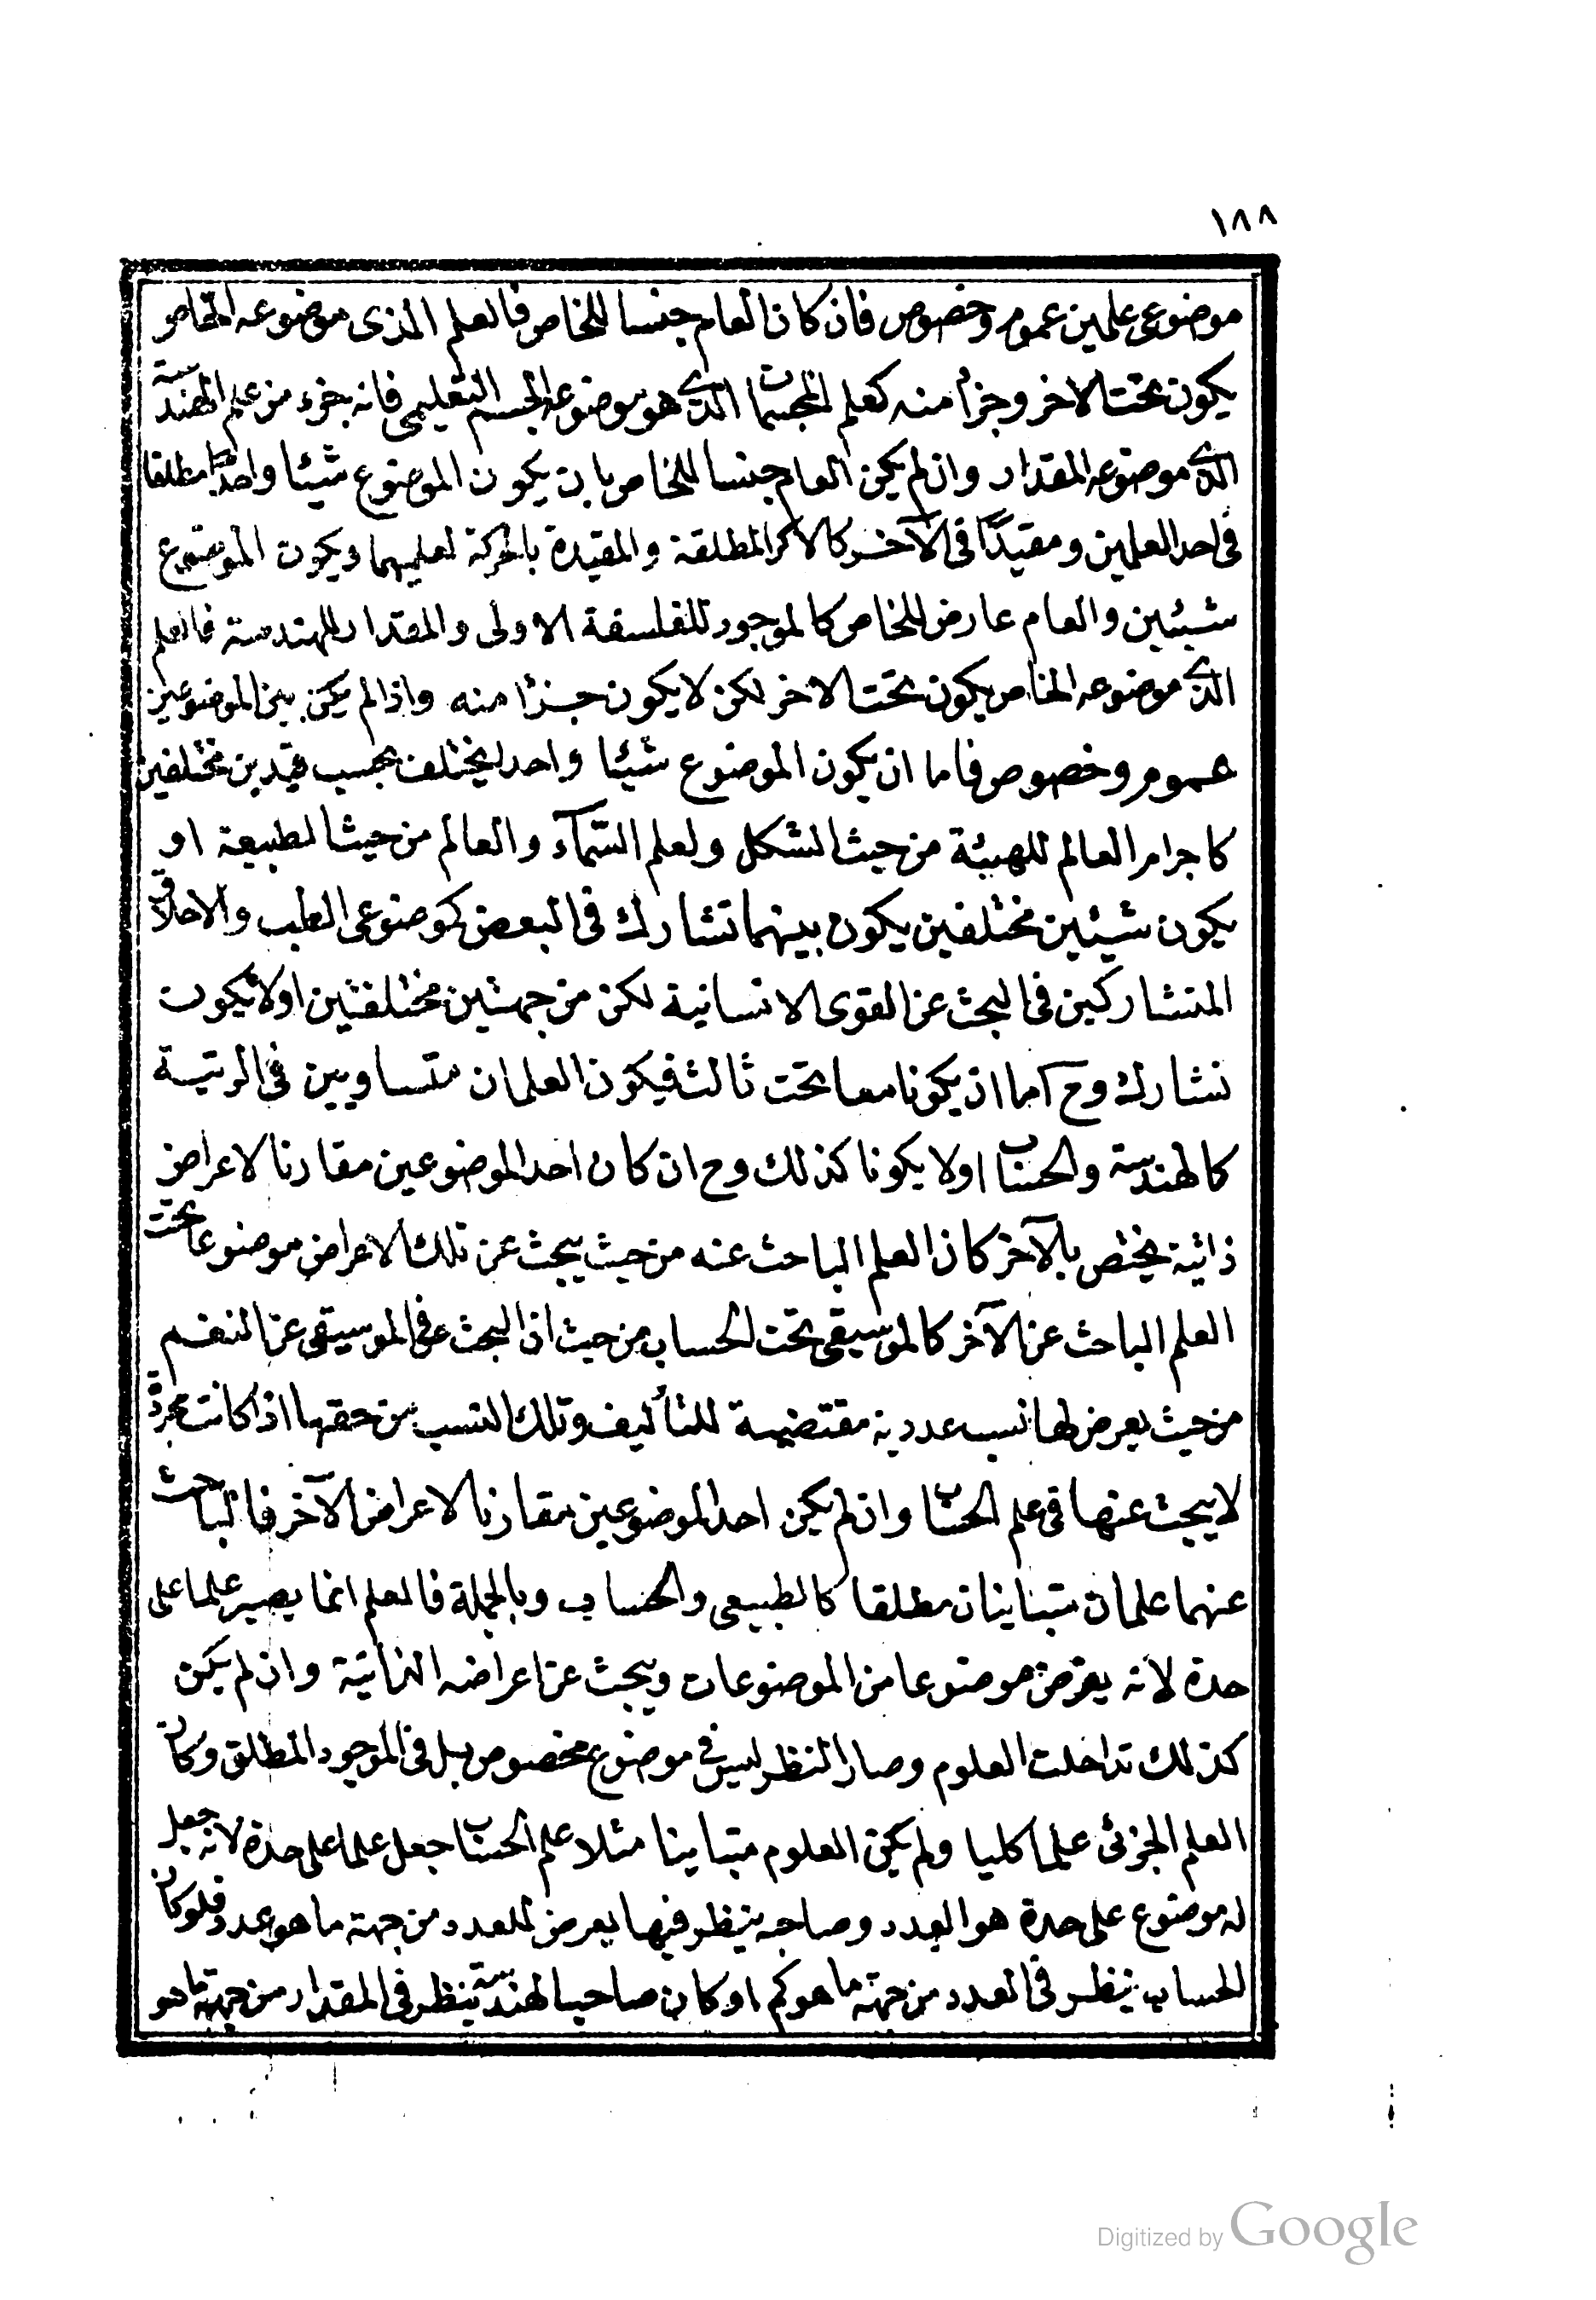 ١٨٨
موضوعى علمين عموم وخصوص فان كان العام جنسا للخاص فالعلم الذى موضوعه الخاص
يكون تحت الاخر وجزأ منه كعلم المجسمات الذى هو موضوعه الجسم التعليمى فانه جزء من علم الهندسة
الذى موضوعه المقدار وان لم يكن العام جنسا للخاص بان يكون الموضوع شيئا واحدًا مطلقا
فى احد العلمين ومقيدًا فى الآخر كالاكر المطلقة والمقيدة بالحركة لعلميهما ويكون الموضوع
شيئين والعام عارض للخاص كالموجود للفلسفة الاولى والمقدار للهندسة فالعلم
الذى موضوعه الخاص يكون تحت الاخر لكن لا يكون جزئا منه واذا لم يكن بين الموضوعين
عموم وخصوص فاما ان يكون الموضوع شيئا واحدا يختلف بحسب قيدين مختلفين
كاجرام العالم للهيئة من حيث الشكل ولعلم السّمآء والعالم من حيث الطبيعة او
يكون شيئين مختلفين يكون بينهما تشارك فى البعض كموضوعى الطب والاخلاق
المتشاركين فى البحث عن القوى الانسانية لكن من جهتين مختلفتين اولا يكون
تشارك وح اما ان يكونا معا تحت ثالث فيكون العلمان متساويين فى الرتبة
كالهندسة والحساب اولا يكونا كذلك وح ان كان احد الموضوعين مقارنا لاعراض
ذاتية يختص بالآخر كان العلم الباحث عنه من حيث يبحث عن تلك الاعراض موضوعا تحت
العلم الباحث عن الآخر كالموسيقى تحت الحساب من حيث ان البحث فى الموسيقى عن النغم
من حيث يعرض لها نسب عددية مقتضية للتأليف وتلك النسب من حقها اذا كانت مجردة
لا يبحث عنها فى علم الحساب وان لم يكن احد الموضوعين مقارنا لاعراض الآخر فالباحث
عنهما علمان متباينان مطلقا كالطبيعى والحساب وبالجملة فالعلم انما يصير علما على
حدة لانه يفرض موضوعا من الموضوعات ويبحث عن اعراضه الذاتية وان لم يكن
كذلك تداخلت العلوم وصار النظر ليس فى موضوع مخصوص بل فى الموجود المطلق وكان
العلم الجزئى علما كليا ولم يكن العلوم متباينا مثلا علم الحساب جعل علما على حدة لانه جعل
له موضوع على حدة هو العدد وصاحبه ينظر فيها يعرض للعدد من جهة ما هو عدد فلو كان
الحساب ينظر فى العدد من جهة ما هو كم او كان صاحب الهندسة ينظر فى المقدار من جهة ما هو
Digitized by Google